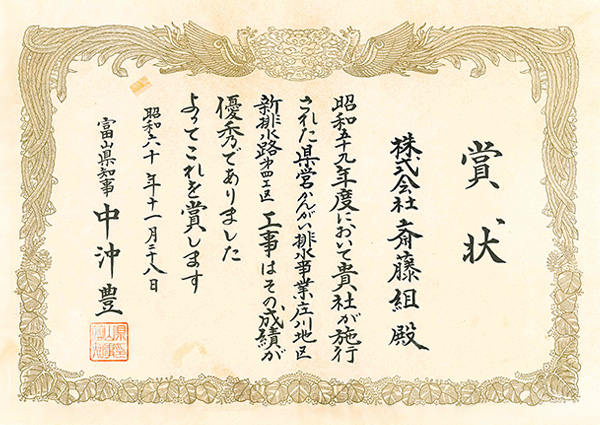 賞状
株式会社斎藤組殿
昭和五十九年度において貴社が施行
された県営かんがい排水事業庄川地区
新排水路第四工区工事はその成績が
優秀でありました
よってこれを賞します
昭和六十年十一月二十八日
富山県知事 中沖豊